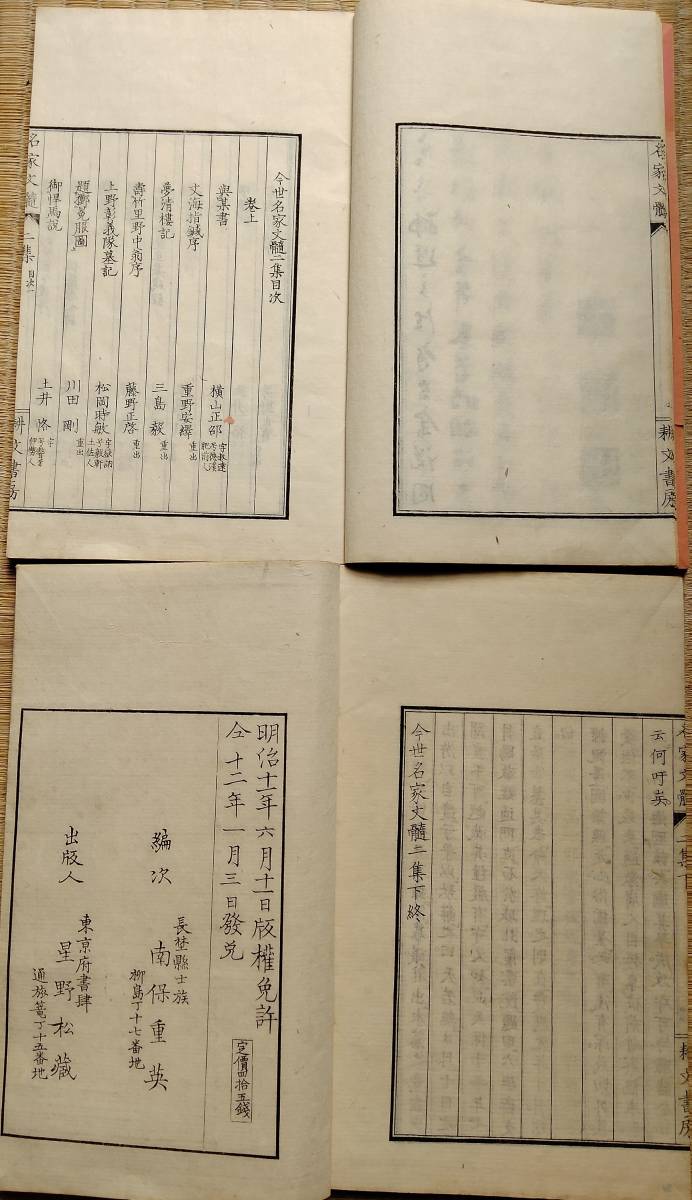 名家文髓
耕文書房
今世名家文髓二集目次
卷上
與某書
橫山正邵
文海指鍼序
重野安繹
重出
夢清樓記
三島 毅
重出
壽竹里野中翁序
藤野正啓
重出
上野彰義隊墓記
松岡時敏
土佐人
川田 剛
重出
御悍馬說
土井 恪
伊勢人
名家文髓
二集
目次一
耕文書房
名家文髓
二集下
耕文書房
云何吁矣
今世名家文髓二集下終
明治十一年六月十一日版權免許
仝 十二年一月三日發兌
定價四拾五錢
編次
長埜縣士族
南保重英
柳島丁十七番地
出版人
東京府書肆
星野松藏
通旅篭丁十五番地